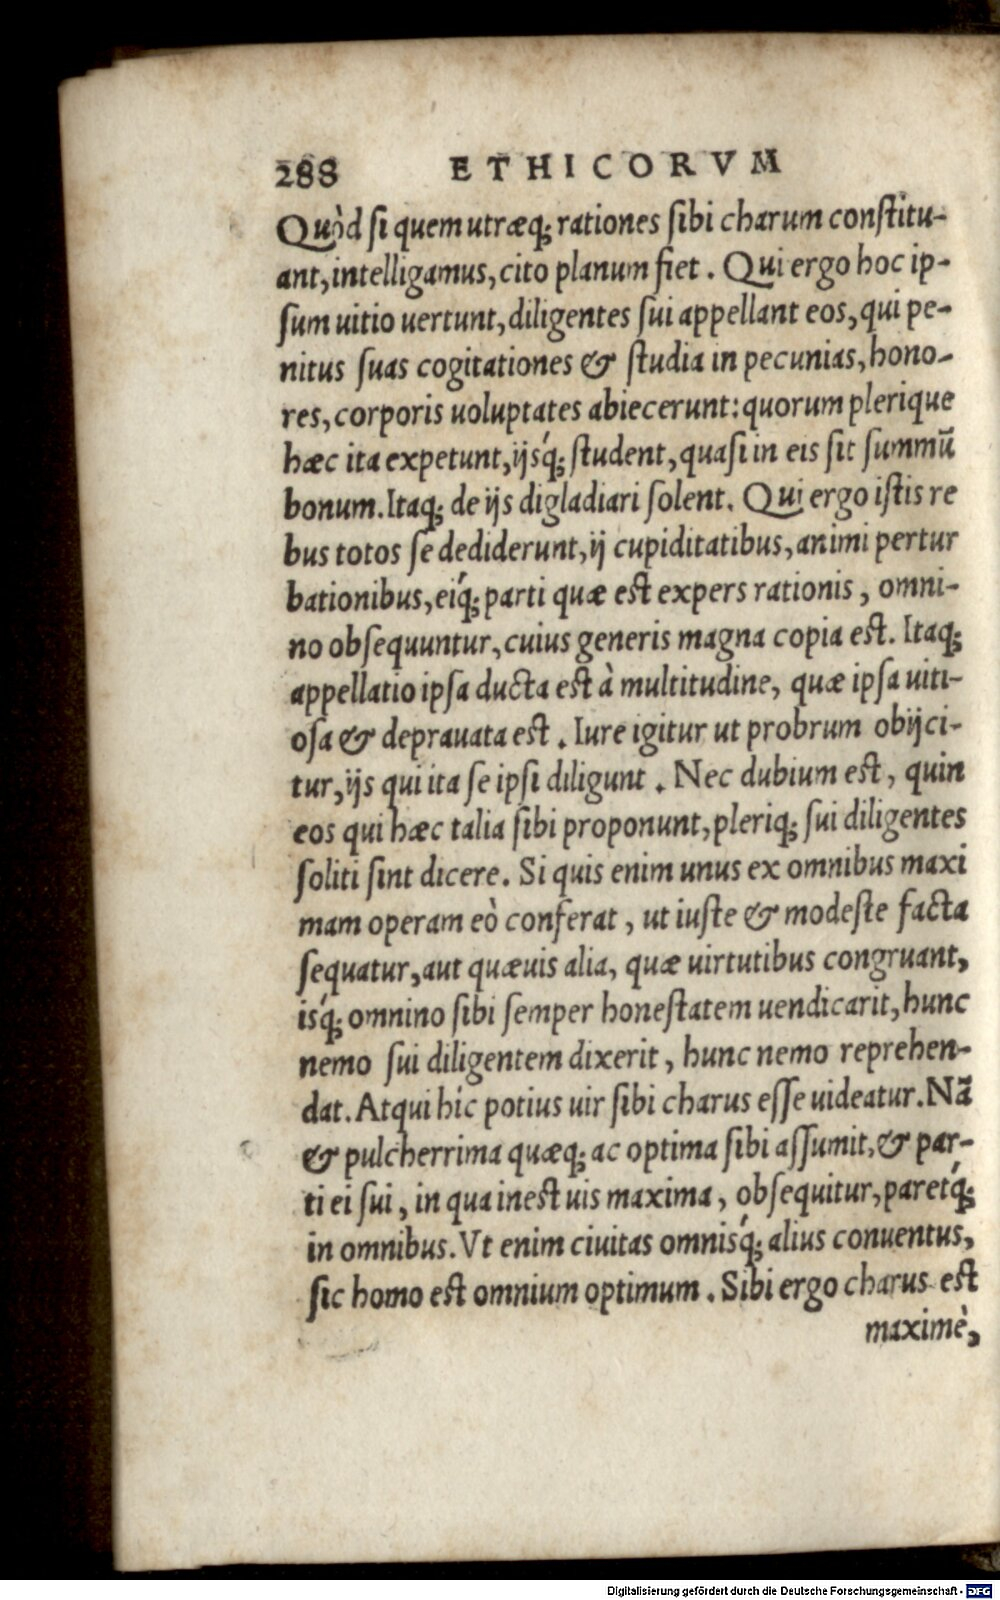 288 ETHICORVM
Quòd ſi quem utræq; rationes ſibi charum conſtitu-
ant, intelligamus, cito planum fiet. Qui ergo hoc ip-
ſum uitio uertunt, diligentes ſui appellant eos, qui pe-
nitus ſuas cogitationes & ſtudia in pecunias, hono-
res, corporis uoluptates abiecerunt: quorum plerique
hæc ita expetunt, ijsq́; ſtudent, quaſi in eis ſit ſummū
bonum. Itaq; de ijs digladiari ſolent. Qui ergo iſtis re
bus totos ſe dediderunt, ij cupiditatibus, animi pertur
bationibus, eiq́; parti quæ eſt expers rationis, omni-
no obſequuntur, cuius generis magna copia eſt. Itaq;
appellatio ipſa ducta eſt à multitudine, quæ ipſa uiti-
oſa & deprauata eſt. Iure igitur ut probrum obijci-
tur, ijs qui ita ſe ipſi diligunt. Nec dubium eſt, quin
eos qui hæc talia ſibi proponunt, pleriq; ſui diligentes
ſoliti ſint dicere. Si quis enim unus ex omnibus maxi
mam operam eò conferat, ut iuſte & modeſte facta
ſequatur, aut quæuis alia, quæ uirtutibus congruant,
isq́; omnino ſibi ſemper honeſtatem uendicarit, hunc
nemo ſui diligentem dixerit, hunc nemo reprehen-
dat. Atqui hic potius uir ſibi charus eſſe uideatur. Nā
& pulcherrima quæq; ac optima ſibi aſſumit, & par-
ti ei ſui, in qua ineſt uis maxima, obſequitur, paretq́;
in omnibus. Vt enim ciuitas omnisq́; alius conuentus,
ſic homo eſt omnium optimum. Sibi ergo charus eſt
maximè,
Digitalisierung gefördert durch die Deutsche Forschungsgemeinschaft - DFG